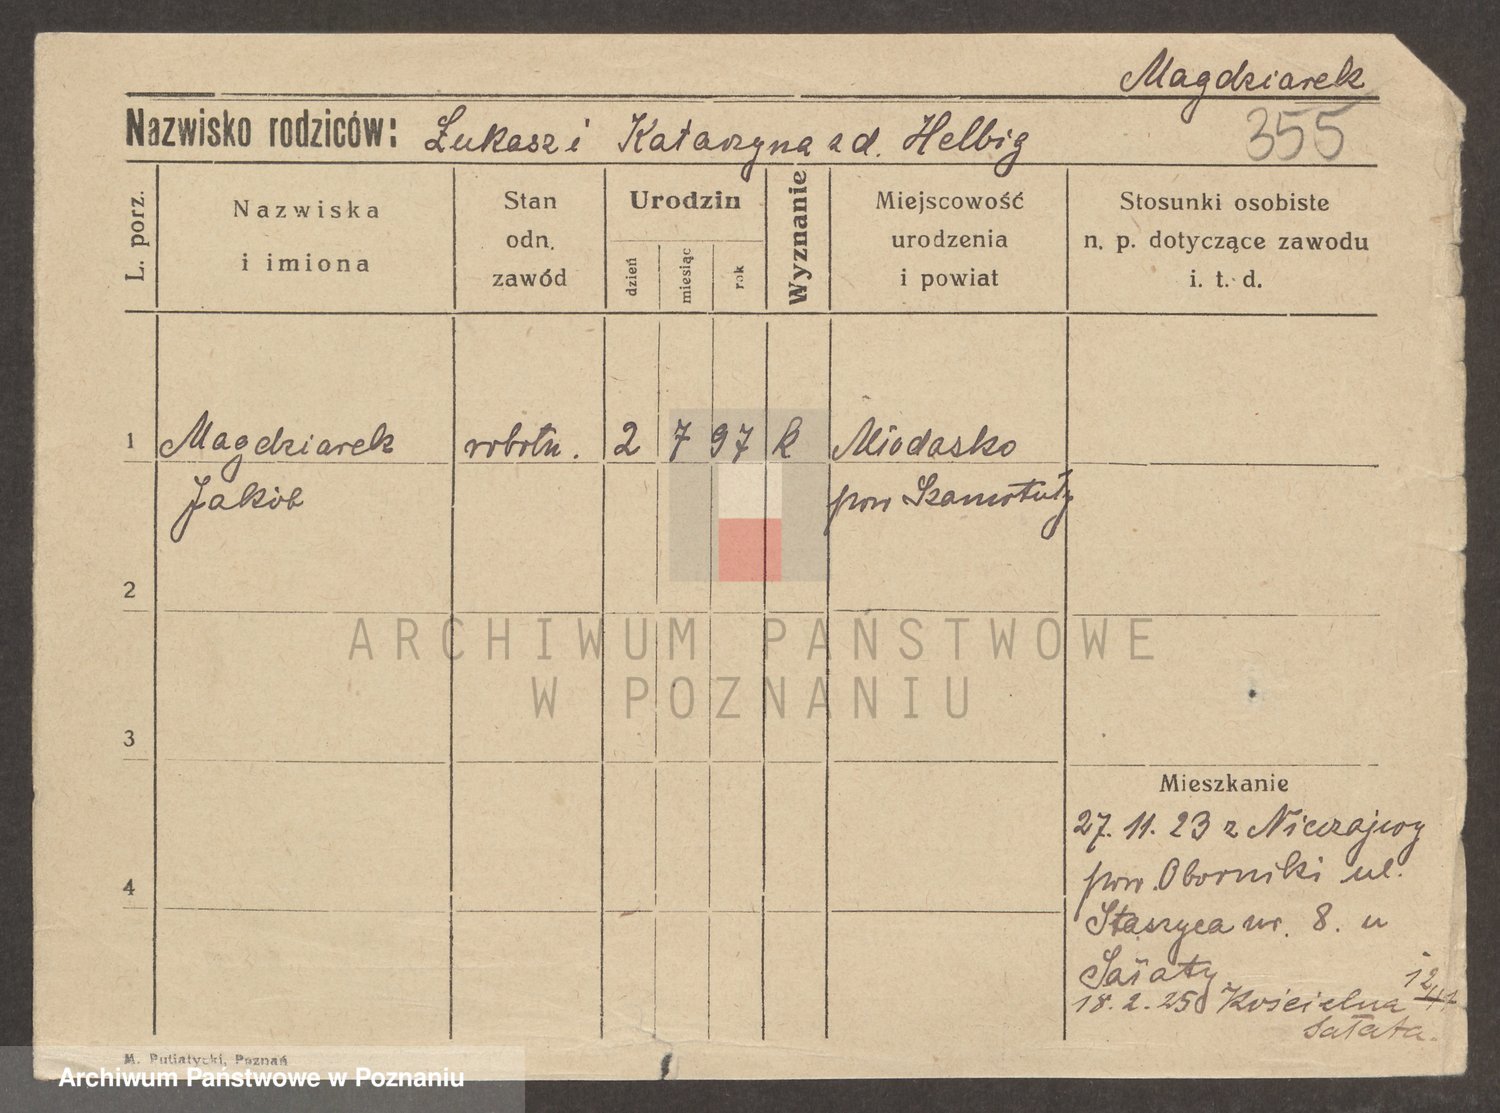 Magdziarek
355
Nazwisko rodziców: Łukasz i Katarzyna z d. Helbig
L. porz.
Nazwiska
i imiona
Stan
odn.
zawód
Urodzin
dzień
miesiąc
rok
Wyznanie
Miejscowość
urodzenia
i powiat
Stosunki osobiste
n. p. dotyczące zawodu
i. t. d.
1 Magdziarek robotn. 2 7 97 k Miodasko
Jakób pow Szamotuły
2
3
4
ARCHIWUM PAŃSTWOWE
W POZNANIU
Mieszkanie
27. 11. 23 z Nieczajwoy
pow. Oborniki ul.
Staszyca nr. 8. u
18. 2. 25 Kościelna
Sałata.
M. Putiatycki, Poznań
Archiwum Państwowe w Poznaniu